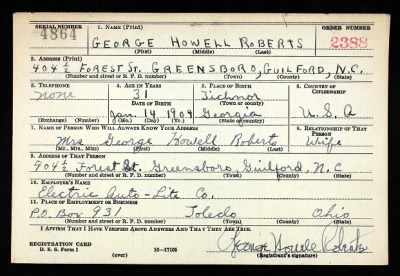 SERIAL NUMBER 1. NAME (Print) ORDER NUMBER
4864 GEORGE HOWELL ROBERTS 2388
(First) (Middle) (Last)
2. ADDRESS (Print)
404½ FOREST St. GREENSBORO, GUILFORD, N.C.
(Number and street or R. F. D. number) (Town) (County) (State)
3. TELEPHONE 4. AGE IN YEARS 5. PLACE OF BIRTH 6. COUNTRY OF CITIZENSHIP
none 31 Tichnor
DATE OF BIRTH (Town or county)
Jan. 14 1909 Georgia U.S.A
(Exchange) (Number) (Mo.) (Day) (Yr.) (State or country)
7. NAME OF PERSON WHO WILL ALWAYS KNOW YOUR ADDRESS 8. RELATIONSHIP OF THAT PERSON
Mrs George Howell Roberts Wife
(Mr., Mrs., Miss) (First) (Middle) (Last)
9. ADDRESS OF THAT PERSON
404½ Forest St. Greensboro, Guilford, N.C
(Number and street or R. F. D. number) (Town) (County) (State)
10. EMPLOYER'S NAME
Electric Auto-Lite Co.
11. PLACE OF EMPLOYMENT OR BUSINESS
P.O. Box 931 Toledo Ohio
(Number and street or R. F. D. number) (Town) (County) (State)
I AFFIRM THAT I HAVE VERIFIED ABOVE ANSWERS AND THAT THEY ARE TRUE.
George Howell Roberts
REGISTRATION CARD
D. S. S. Form 1 16—17105 (Registrant's signature)
(over)